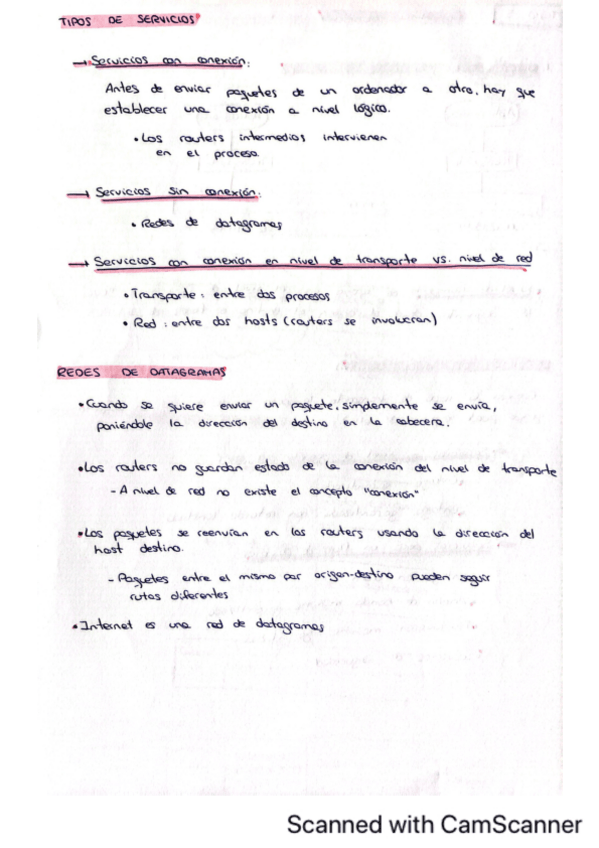 TIPOS DE SERVICIOS
→ Servicios con conexión:
Antes de enviar paquetes de un ordenador a otro, hay que
establecer una conexión a nivel lógico.
• Los routers intermedios intervienen
en el proceso.
→ Servicios sin conexión:
• Redes de datagramas
→ Servicios con conexión en nivel de transporte vs. nivel de red
• Transporte: entre dos procesos
• Red: entre dos hosts (routers se involucran)
REDES DE DATAGRAMAS
• Cuando se quiere enviar un paquete, simplemente se envía,
poniéndole la dirección del destino en la cabecera.
• Los routers no guardan estado de la conexión del nivel de transporte
- A nivel de red no existe el concepto "conexión"
• Los paquetes se reenvían en los routers usando la dirección del
host destino.
- Paquetes entre el mismo par origen-destino pueden seguir
rutas diferentes
• Internet es una red de datagramas
Scanned with CamScanner